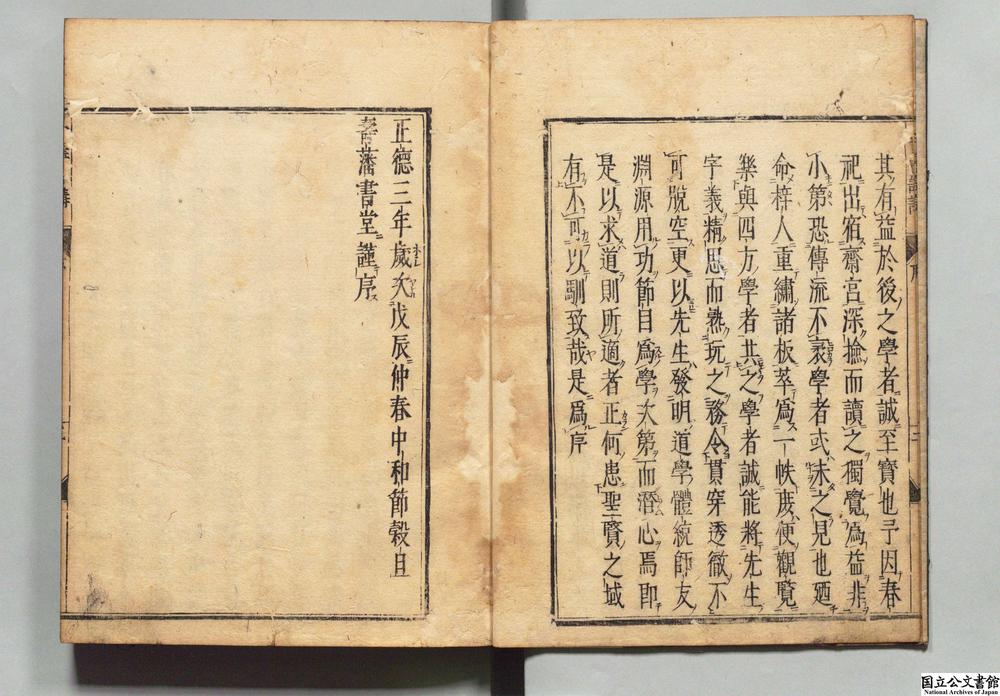 其有益於後之學者誠至寶也予因春
祀出宿齋宮深撿而讀之獨覺爲益非
小第恐傳流不裹學者或未之見也廼
命梓人重繡諸板萃爲一帙庻便觀覽
樂與四方學者共之學者誠能將先生
字義精思而熟玩之務令貫穿透徹不
可脫空更以先生發明道學體統師友
淵源用功節目爲學次第而潛心焉即
是以求道則所適者正何患聖賢之域
有不可以馴致哉是爲序
正德三年歲次戊辰仲春中和節穀旦
書藩書堂謹序
國立公文書館
National Archives of Japan